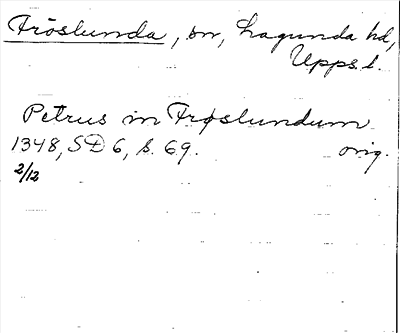 Fröslunda, on, Lagunda hd,
Upps. l.
Petrus in Frøslundum
1348, SD 6, s. 69. orig.
2/12